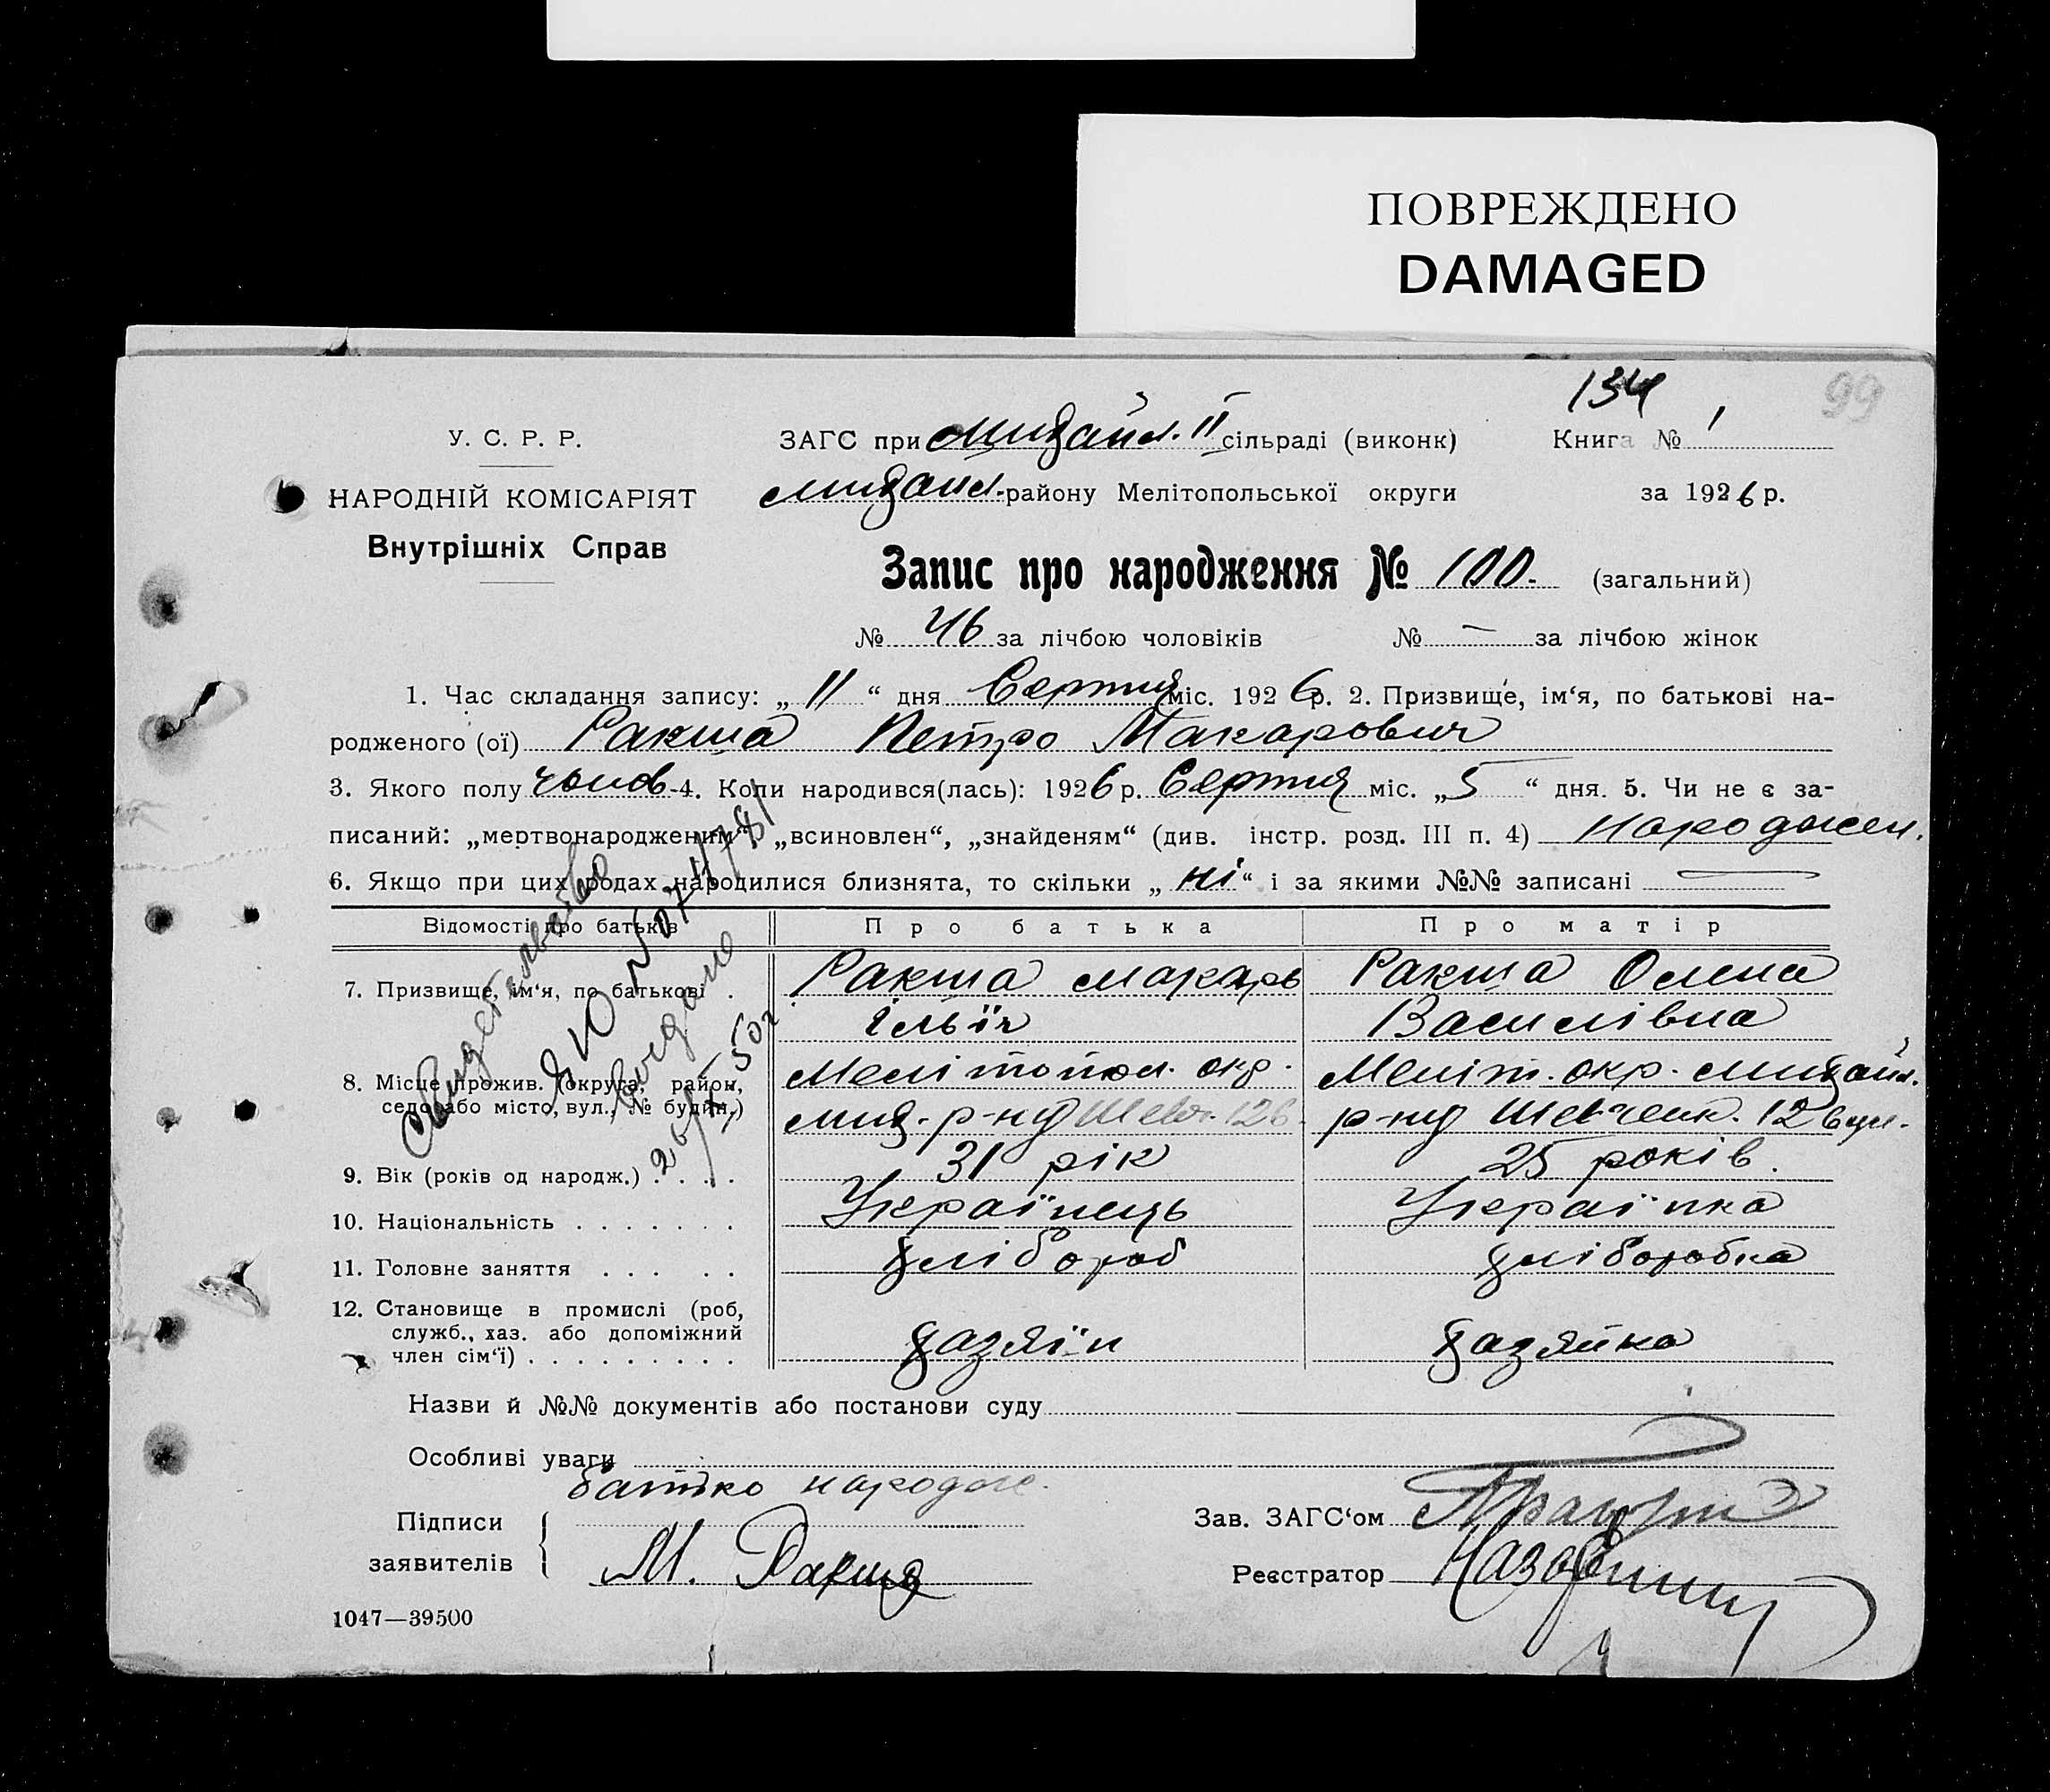 ПОВРЕЖДЕНО
DAMAGED
134
99
У. С. Р. Р.
ЗАГС при Михайл. II сільраді (виконк)
Книга № 1
НАРОДНІЙ КОМІСАРІЯТ
Михайл. району Мелітопольської округи
за 1926 р.
Внутрішніх Справ
Запис про народження № 100. (загальний)
№ 46 за лічбою чоловіків № — за лічбою жінок
1. Час складання запису: „ 11 “ дня Серпня міс. 1926 р. 2. Призвище, ім‘я, по батькові на-
родженого (ої) Ракша Петро Макарович
3. Якого полу чолов. 4. Коли народився(лась): 1926 р. Серпня міс. „ 5 “ дня. 5. Чи не є за-
писаний: „мертвонародженим“ „всиновлен“, „знайденям“ (див. інстр. розд. III п. 4) народжен.
6. Якщо при цих родах народилися близнята, то скільки „ ні “ і за якими №№ записані —
Відомості про батьків
Про батька
Про матір
7. Призвище, ім‘я, по батькові .
Ракша Макарь
Ракша Олена
Ільїч
Василівна
8. Місце прожив. (округа, район,
Мелітопол. окр.
Меліт. окр. Михайл.
село або місто, вул., № будин.)
Мих. р-ну Шевч. 126
р-ну Шевченк. 12 вул.
9. Вік (років од народж.) . . . .
31 рік
25 років.
10. Національність . . . . . . .
Українець
Українка
11. Головне заняття . . . . .
хлібороб
хліборобка
12. Становище в промислі (роб,
служб., хаз. або допоміжний
член сім‘ї) . . . . . . . . .
хазяїн
хазяйка
Свидетельство
ЯЮ № 074781
выдано
26/X 50 г.
Назви й №№ документів або постанови суду
Особливі уваги
батько народж.
Підписи
заявителів
М. Ракша
Зав. ЗАГС‘ом
Реєстратор
1047—39500